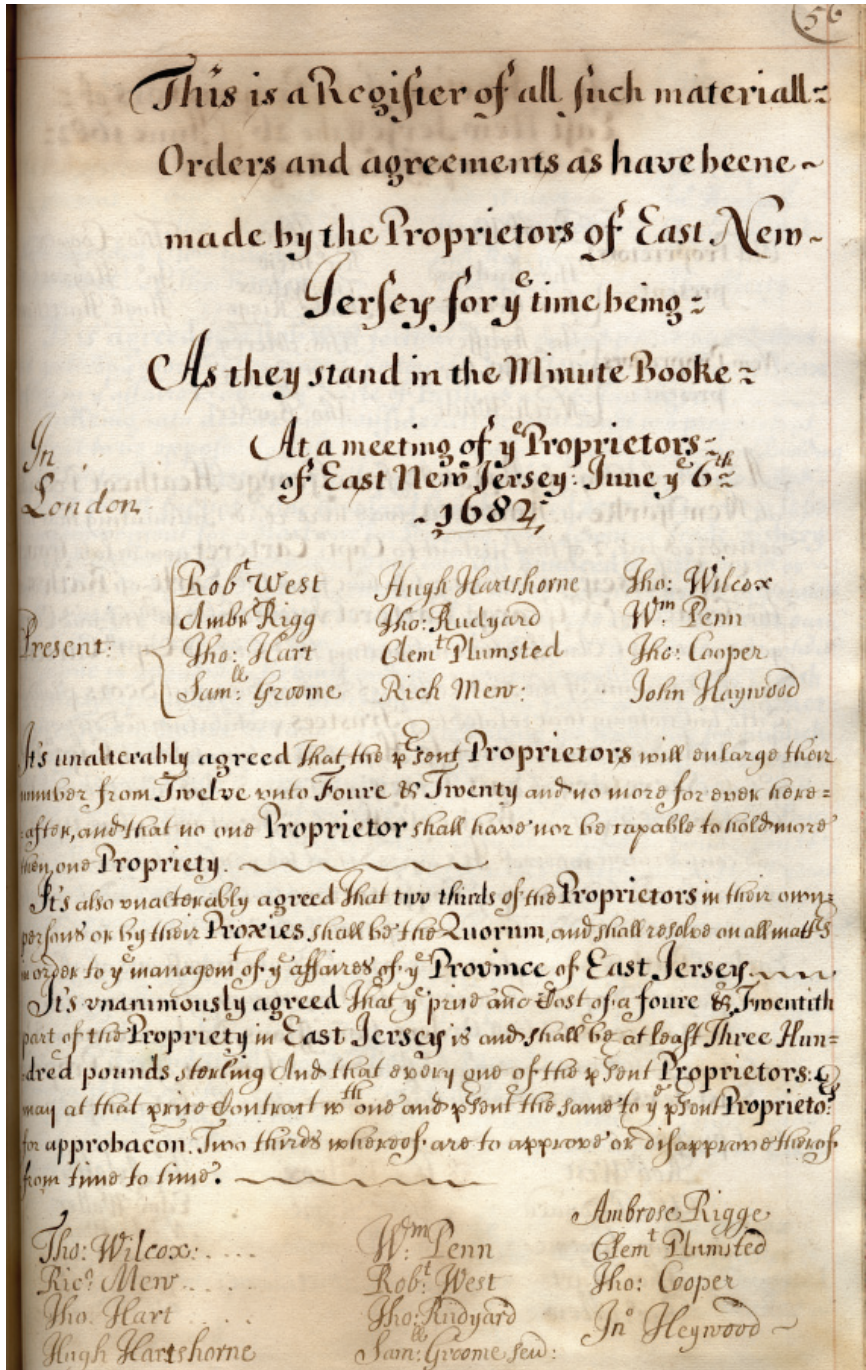 56
This is a Register of all such materiall=
Orders and agreements as have beene~
made by the Proprietors of East New~
Jersey for yᵉ time being=
As they stand in the Minute Booke=
In London
At a meeting of yᵉ Proprietors=
of East New Jersey: June yᵉ 6ᵗʰ=
1682
Present:
Robᵗ West Hugh Hartshorne Tho: Wilcox
Ambrˢ Rigg Tho: Rudyard Wᵐ Penn
Tho: Hart Clemᵗ Plumsted Tho: Cooper
Samˡˡ: Groome Rich Mew: John Haywood
It's unalterably agreed That the pʳsent Proprietors will enlarge their
number from Twelve vnto Foure & Twenty and no more for ever here=
after, and that no one Proprietor shall have nor be capable to hold more
then one Propriety.
It's also vnalterably agreed That two thirds of the Proprietors in their own=
persons or by their Proxies shall be the Quorum, and shall resolve on all mattʳˢ
in order to yᵉ managemᵗ of yᵉ affaires of yᵉ Province of East Jersey.
It's vnanimously agreed That yᵉ price and Cost of a foure & Twentith
part of the Propriety in East Jersey is and shall be at least Three Hun=
dred pounds sterling And that every one of the pʳsent Proprietors
may at that price Contract wᵗʰ one and pʳsent the same to yᵉ pʳsent Proprietoʳˢ
for approbacon. Two thirds whereof are to approve or disapprove thereof
from time to time.
Tho: Wilcox: Wᵐ: Penn Ambrose Rigge
Ricᵈ: Mew Robᵗ: West Clemᵗ Plumsted
Tho: Hart Tho: Rudyard Tho: Cooper
Hugh Hartshorne Samˡˡ: Groome seu: Jnᵒ Heywood~